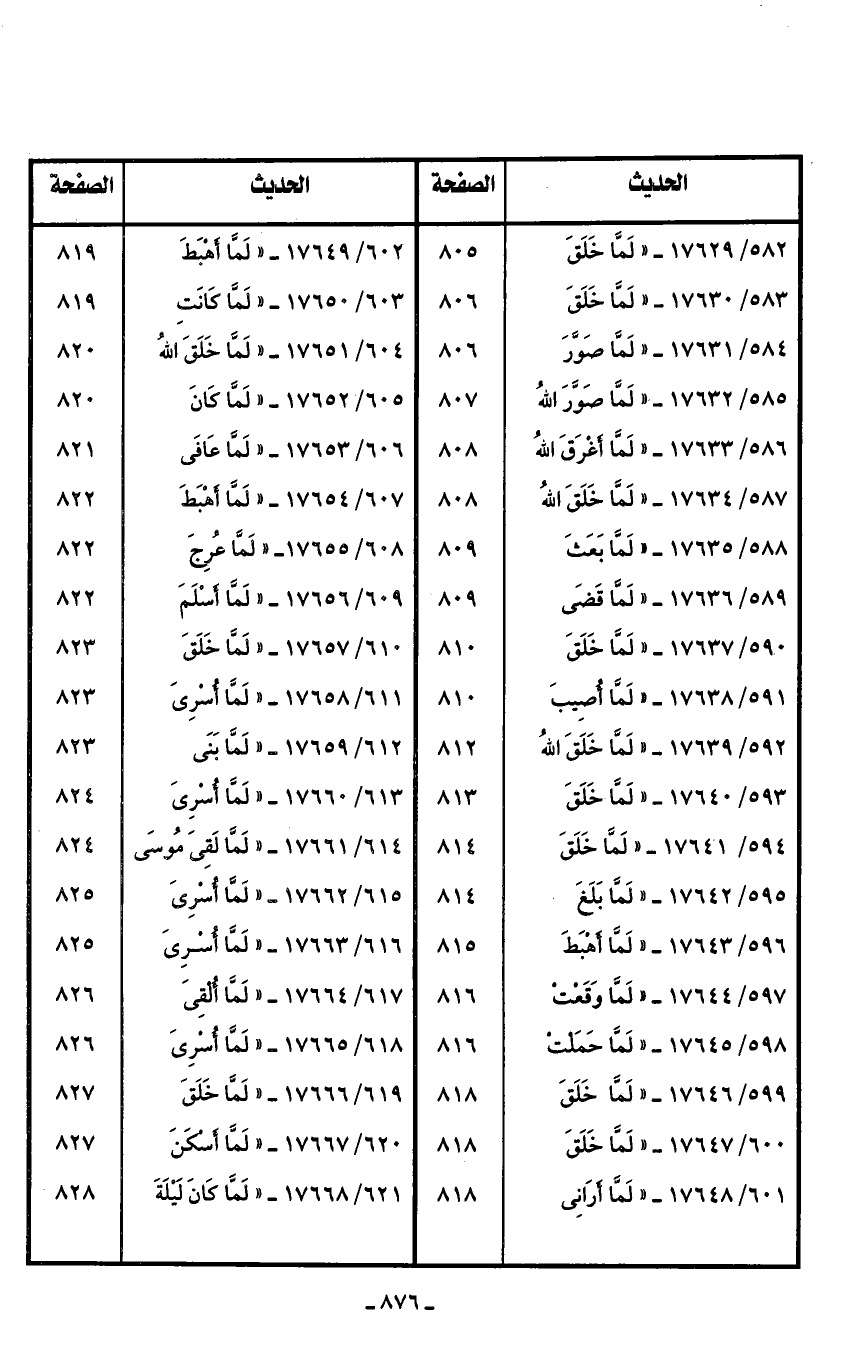 الحديث الصفحة الحديث الصفحة
٥٨٢/ ١٧٦٢٩ ـ « لَمَّا خَلَقَ ٨٠٥ ٦٠٢/ ١٧٦٤٩ ـ « لَمَّا أَهْبَطَ ٨١٩
٥٨٣/ ١٧٦٣٠ ـ « لَمَّا خَلَقَ ٨٠٦ ٦٠٣/ ١٧٦٥٠ ـ « لَمَّا كَانَتِ ٨١٩
٥٨٤/ ١٧٦٣١ ـ « لَمَّا صَوَّرَ ٨٠٦ ٦٠٤/ ١٧٦٥١ ـ « لَمَّا خَلَقَ اللهُ ٨٢٠
٥٨٥/ ١٧٦٣٢ ـ « لَمَّا صَوَّرَ اللهُ ٨٠٧ ٦٠٥/ ١٧٦٥٢ ـ « لَمَّا كَانَ ٨٢٠
٥٨٦/ ١٧٦٣٣ ـ « لَمَّا أَغْرَقَ اللهُ ٨٠٨ ٦٠٦/ ١٧٦٥٣ ـ « لَمَّا عَافَى ٨٢١
٥٨٧/ ١٧٦٣٤ ـ « لَمَّا خَلَقَ اللهُ ٨٠٨ ٦٠٧/ ١٧٦٥٤ ـ « لَمَّا أَهْبَطَ ٨٢٢
٥٨٨/ ١٧٦٣٥ ـ « لَمَّا بَعَثَ ٨٠٩ ٦٠٨/ ١٧٦٥٥ـ « لَمَّا عُرِجَ ٨٢٢
٥٨٩/ ١٧٦٣٦ ـ « لَمَّا قَضَى ٨٠٩ ٦٠٩/ ١٧٦٥٦ ـ « لَمَّا أَسْلَمَ ٨٢٢
٥٩٠/ ١٧٦٣٧ ـ « لَمَّا خَلَقَ ٨١٠ ٦١٠/ ١٧٦٥٧ ـ « لَمَّا خَلَقَ ٨٢٣
٥٩١/ ١٧٦٣٨ ـ « لَمَّا أُصِيبَ ٨١٠ ٦١١/ ١٧٦٥٨ ـ « لَمَّا أُسْرِىَ ٨٢٣
٥٩٢/ ١٧٦٣٩ ـ « لَمَّا خَلَقَ اللهُ ٨١٢ ٦١٢/ ١٧٦٥٩ ـ « لَمَّا بَنَى ٨٢٣
٥٩٣/ ١٧٦٤٠ ـ « لَمَّا خَلَقَ ٨١٣ ٦١٣/ ١٧٦٦٠ ـ « لَمَّا أُسْرِىَ ٨٢٤
٥٩٤/ ١٧٦٤١ ـ « لَمَّا خَلَقَ ٨١٤ ٦١٤/ ١٧٦٦١ ـ « لَمَّا لَقِىَ مُوسَى ٨٢٤
٥٩٥/ ١٧٦٤٢ ـ « لَمَّا بَلَغَ ٨١٤ ٦١٥/ ١٧٦٦٢ ـ « لَمَّا أُسْرِىَ ٨٢٥
٥٩٦/ ١٧٦٤٣ ـ « لَمَّا أَهْبَطَ ٨١٥ ٦١٦/ ١٧٦٦٣ ـ « لَمَّا أُسْرِىَ ٨٢٥
٥٩٧/ ١٧٦٤٤ ـ « لَمَّا وَقَعْتْ ٨١٦ ٦١٧/ ١٧٦٦٤ ـ « لَمَّا أُلْقِىَ ٨٢٦
٥٩٨/ ١٧٦٤٥ ـ « لَمَّا حَمَلَتْ ٨١٦ ٦١٨/ ١٧٦٦٥ ـ « لَمَّا أُسْرِىَ ٨٢٦
٥٩٩/ ١٧٦٤٦ ـ « لَمَّا خَلَقَ ٨١٨ ٦١٩/ ١٧٦٦٦ ـ « لَمَّا خَلَقَ ٨٢٧
٦٠٠/ ١٧٦٤٧ ـ « لَمَّا خَلَقَ ٨١٨ ٦٢٠/ ١٧٦٦٧ ـ « لَمَّا أَسْكَنَ ٨٢٧
٦٠١/ ١٧٦٤٨ ـ « لَمَّا أَرَانِى ٨١٨ ٦٢١/ ١٧٦٦٨ ـ « لَمَّا كَانَ لَيْلَةَ ٨٢٨
ـ ٨٧٦ ـ